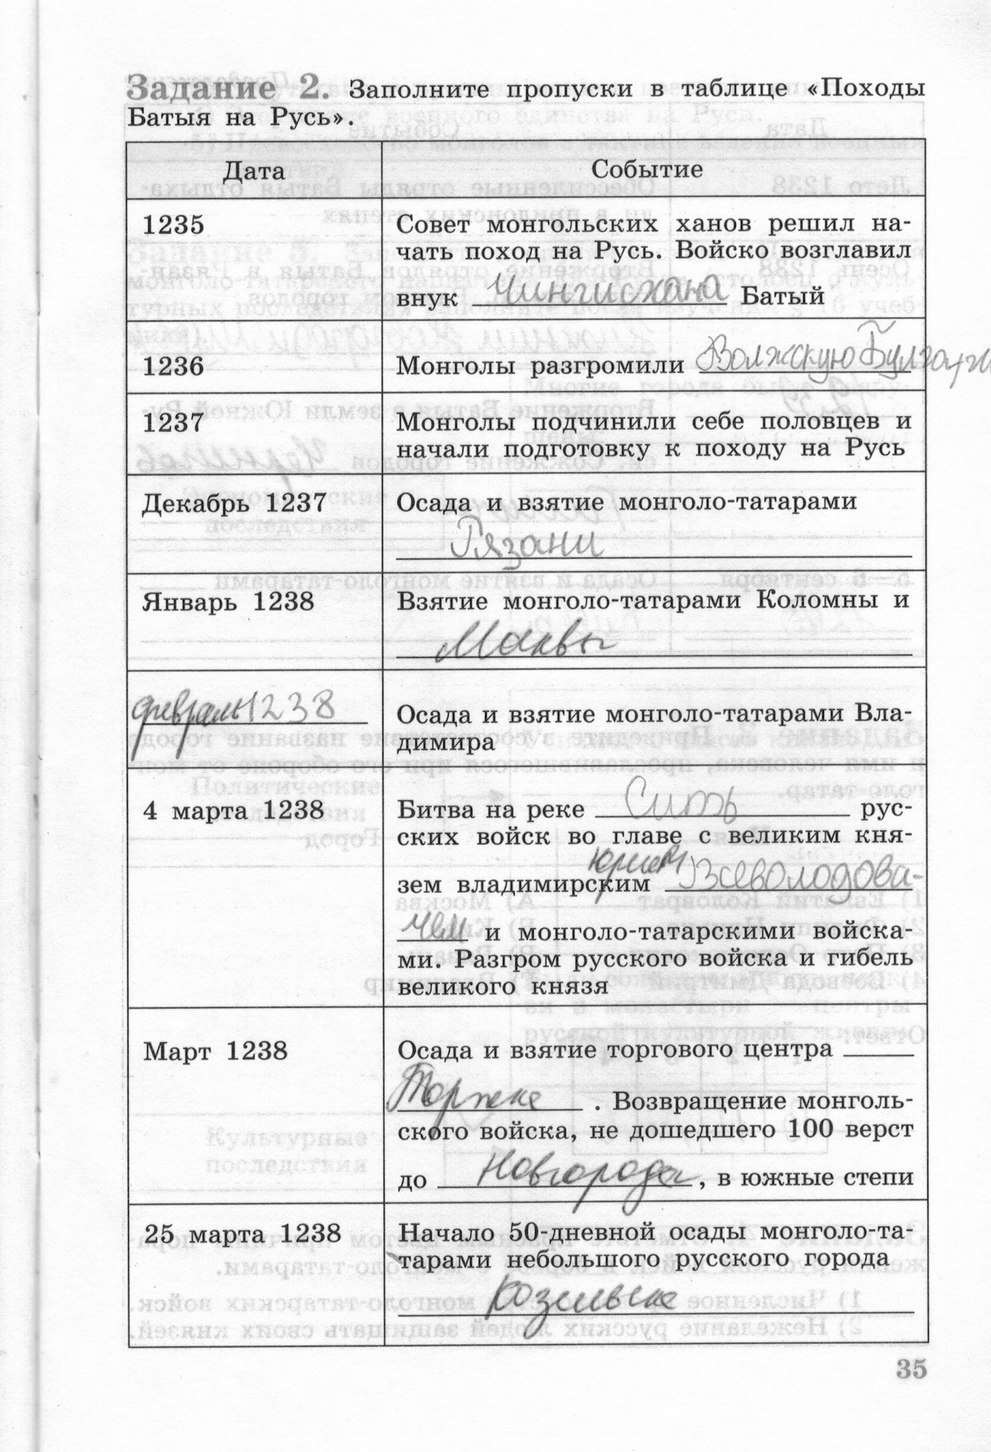 Задание 2. Заполните пропуски в таблице «Походы
Батыя на Русь».
Дата Событие
1235 Совет монгольских ханов решил на-
чать поход на Русь. Войско возглавил
внук Чингисхана Батый
1236 Монголы разгромили Волжскую Булгарию
1237 Монголы подчинили себе половцев и
начали подготовку к походу на Русь
Декабрь 1237 Осада и взятие монголо-татарами
Рязани
Январь 1238 Взятие монголо-татарами Коломны и
Москвы
февраль 1238 Осада и взятие монголо-татарами Вла-
димира
4 марта 1238 Битва на реке Сить рус-
ских войск во главе с великим кня-
зем владимирским Юрием Всеволодови-
чем и монголо-татарскими войска-
ми. Разгром русского войска и гибель
великого князя
Март 1238 Осада и взятие торгового центра
Торжка . Возвращение монголь-
ского войска, не дошедшего 100 верст
до Новгорода, в южные степи
25 марта 1238 Начало 50-дневной осады монголо-та-
тарами небольшого русского города
Козельска
35